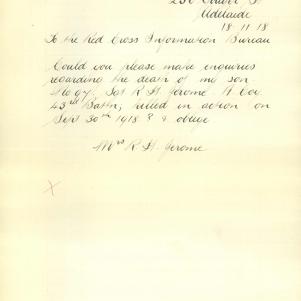 Adelaide
18.11.18
To the Red Cross Information Bureau
Could you please make enquiries
regarding the death of my son
Sgt R H Jerome A Coy
43rd Battn, killed in action on
Sept 30th 1918 & oblige
Mrs R H Jerome